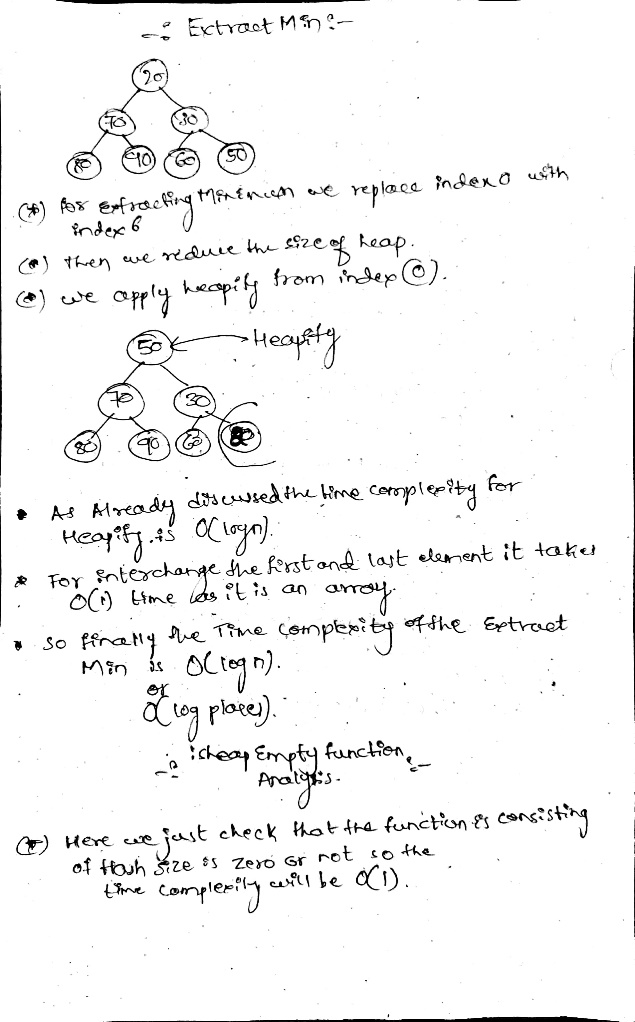 -: Extract Min :-
20
70 30
80 90 60 50
(*) for extracting Minimum we replace index 0 with
index 6
(*) Then we reduce the size of heap.
(*) we apply heapify from index (0).
50 Heapify
70 30
80 90 60
• As Already discussed the time complexity for
Heapify is O(logn).
* For interchange the first and last element it takes
O(1) time as it is an array.
• so finally the Time complexity of the Extract
Min is O(logn).
or
O(log places).
-: isheap Empty function :-
Analysis.
(*) Here we just check that the function is consisting
of size is zero or not so the
time complexity will be O(1).